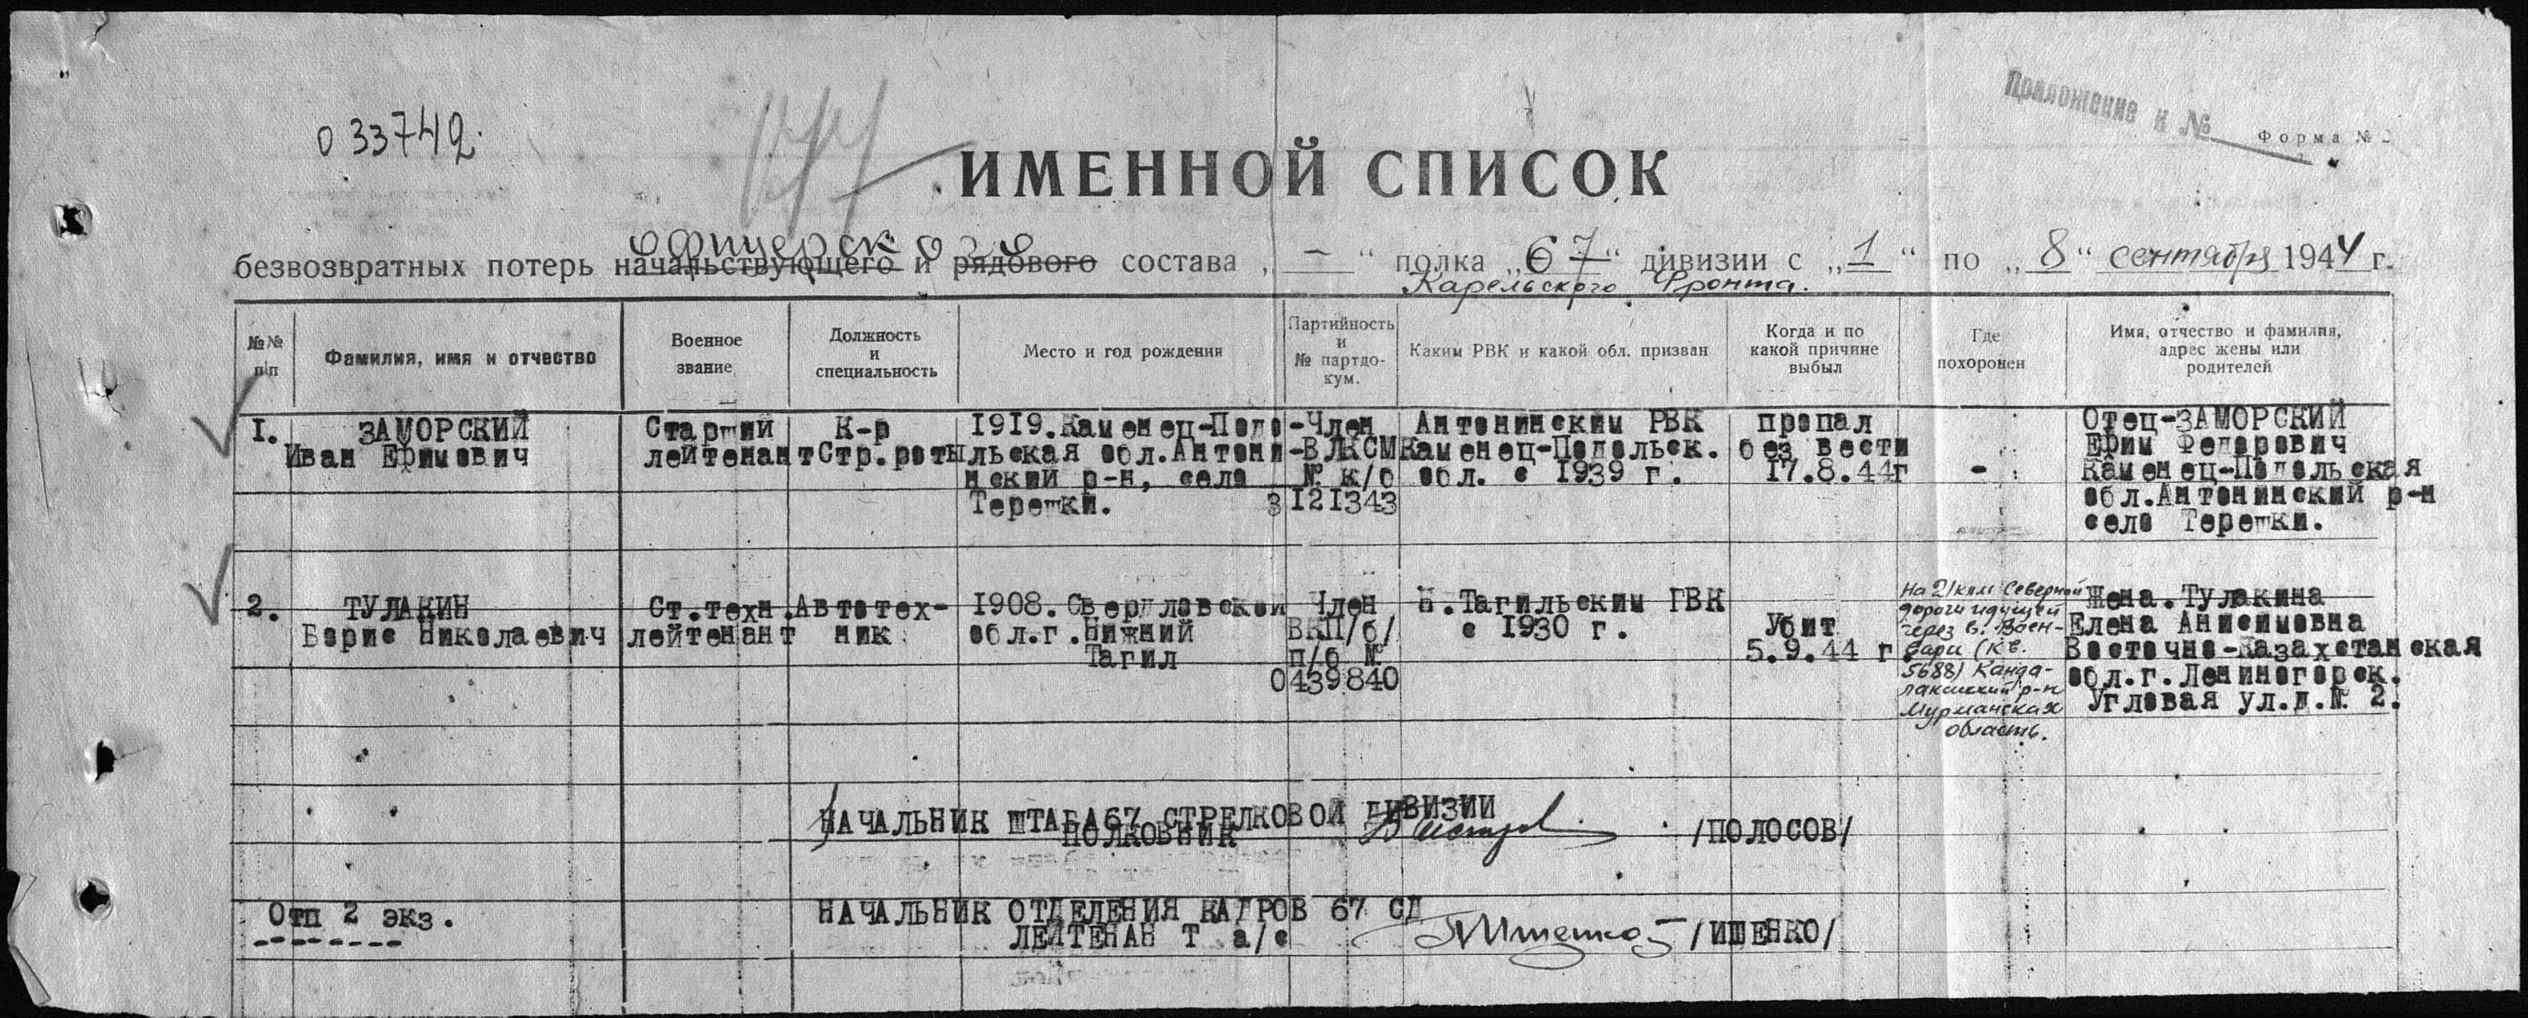 Приложение к №
Форма № 2
0 33742.
ИМЕННОЙ СПИСОК
офицерского
безвозвратных потерь начальствующего и рядового состава „ — “ полка „67“ дивизии с „1“ по „8“ сентября 1944 г.
Карельского Фронта.
№№ п\п
Фамилия, имя и отчество
Военное звание
Должность и специальность
Место и год рождения
Партийность и № партдо-кум.
Каким РВК и какой обл. призван
Когда и по какой причине выбыл
Где похоронен
Имя, отчество и фамилия, адрес жены или родителей
1. ЗАМОРСКИЙ Старший К-р 1919.Каменец-Подо -Член Антонинским РВК пропал Отец-ЗАМОРСКИЙ
Иван Ефимович лейтенант Стр.роты льская обл.Антони -ВЛКСМ Каменец-Подольск. без вести Ефим Федорович
нский р-н, село № к/б обл. с 1939 г. 17.8.44г - Каменец-Подольская
Терешки. 3121343 обл.Антонинский р-н
село Терешки.
2. ТУЛАКИН Ст.техн. Автотех- 1908.Свердловской Член Н.Тагильским ГВК Жена.Тулакина
Борис Николаевич лейтенант ник обл.г.Нижний ВКП/б/ с 1930 г. Убит Елена Анисимовна
Тагил п/б № 5.9.44 г. Восточно-Казахстанская
0439840 обл.г.Лениногорск.
Угловая ул.д.№ 2.
На 21 клм Северной
дороги идущей
через в. Воен-
вари (Кв.
5688) Канда-
лакшский р-н
Мурманская
область.
НАЧАЛЬНИК ШТАБА67 СТРЕЛКОВОЙ ДИВИЗИИ
ПОЛКОВНИК /ПОЛОСОВ/
Отп 2 экз.
НАЧАЛЬНИК ОТДЕЛЕНИЯ КАДРОВ 67 СД
ЛЕЙТЕНАН Т а/с /ИШЕНКО/